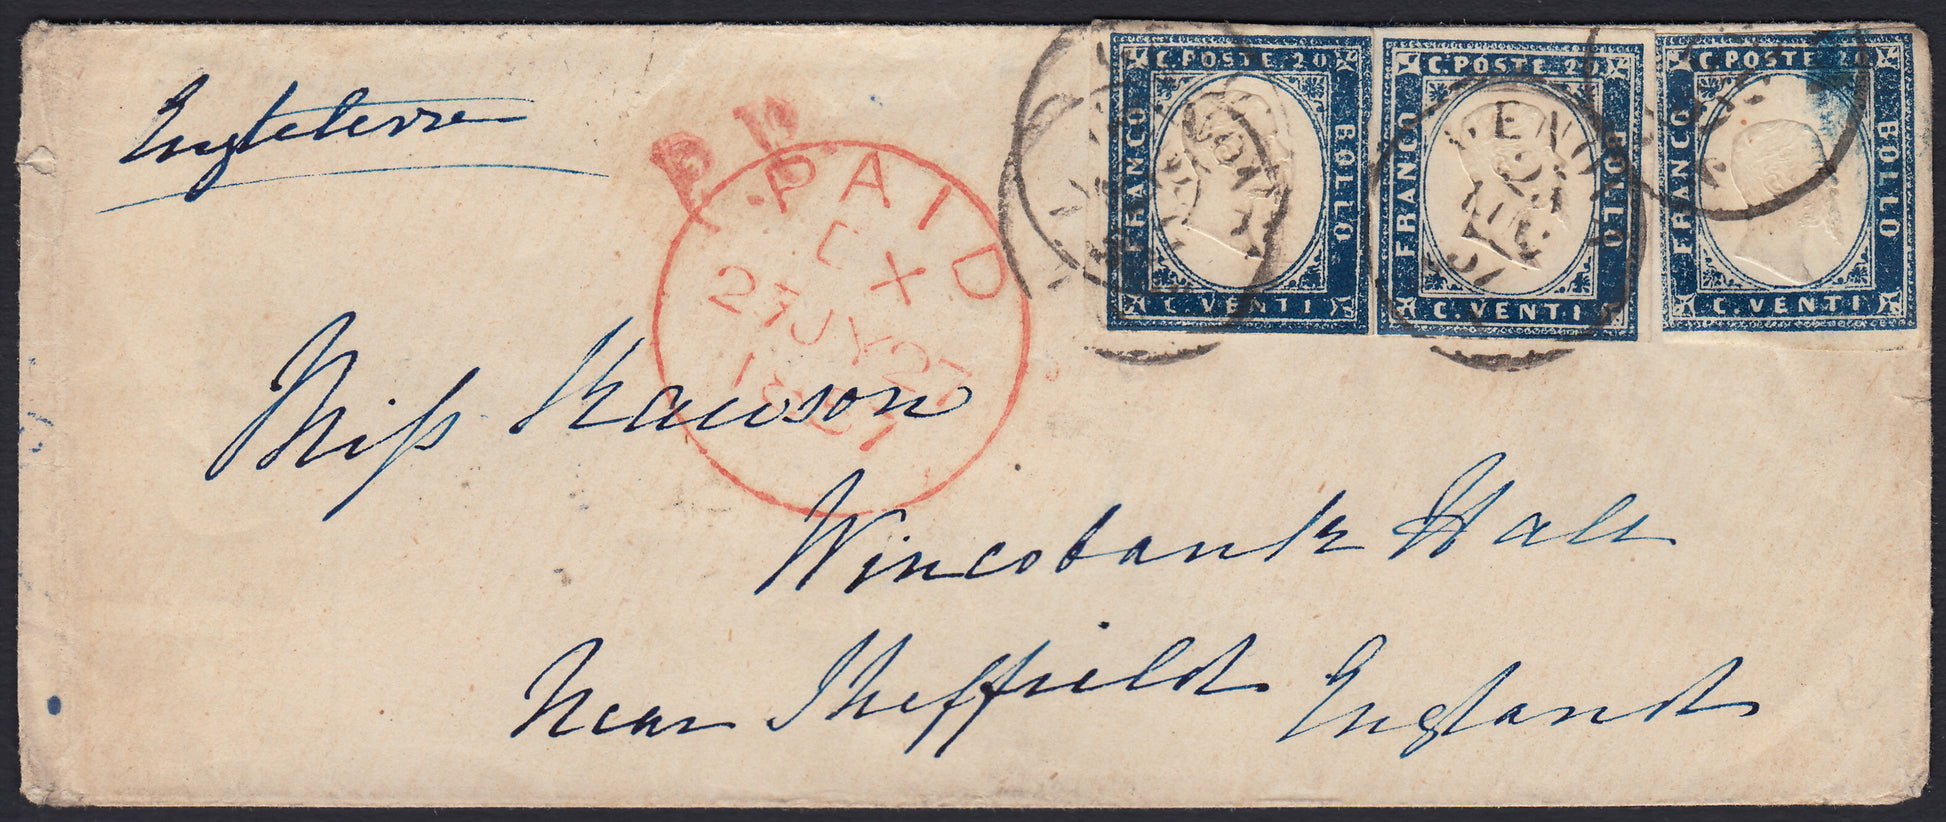 Engleterre
P.P.
PAID
CX
27 JY 27
1857
C. POSTE 20
FRANCO
BOLLO
C. VENTI
C. POSTE 20
FRANCO
BOLLO
C. VENTI
C. POSTE 20
FRANCO
BOLLO
C. VENTI
GENOVA
LUG
57
Miss Rawson
Wincobank Hall
Near Sheffield England